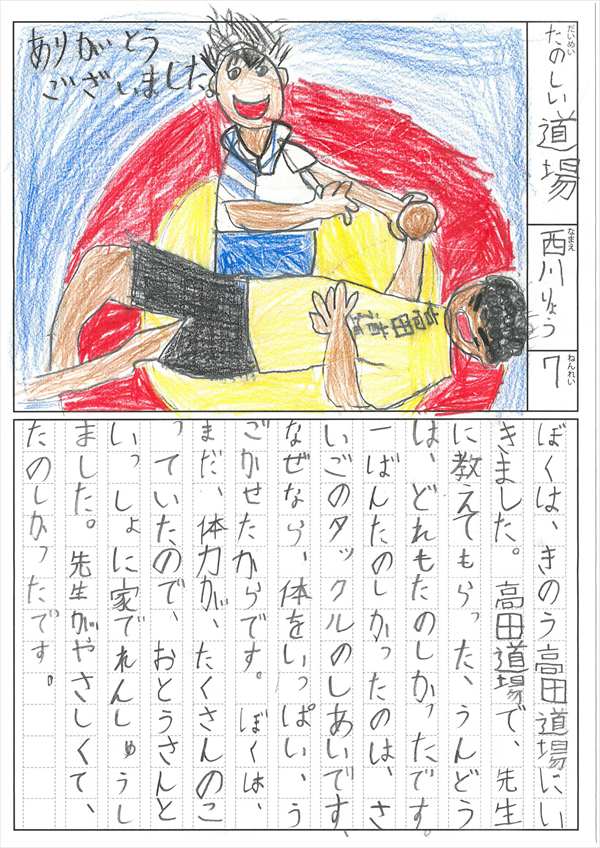 ありがとう
ございました。
だいめい
たのしい道場
なまえ
西川りょう
ねんれい
7
高田道場
ぼくは、きのう高田道場にい
きました。高田道場で、先生
に教えてもらった、うんどう
は、どれもたのしかったです。
一ばんたのしかったのは、さ
いごのタックルのしあいです、
なぜなら、体をいっぱい、う
ごかせたからです。ぼくは、
まだ、体力が、たくさんのこ
っていたので、おとうさんと
いっしょに家でれんしゅうし
ました。先生がやさしくて、
たのしかったです。